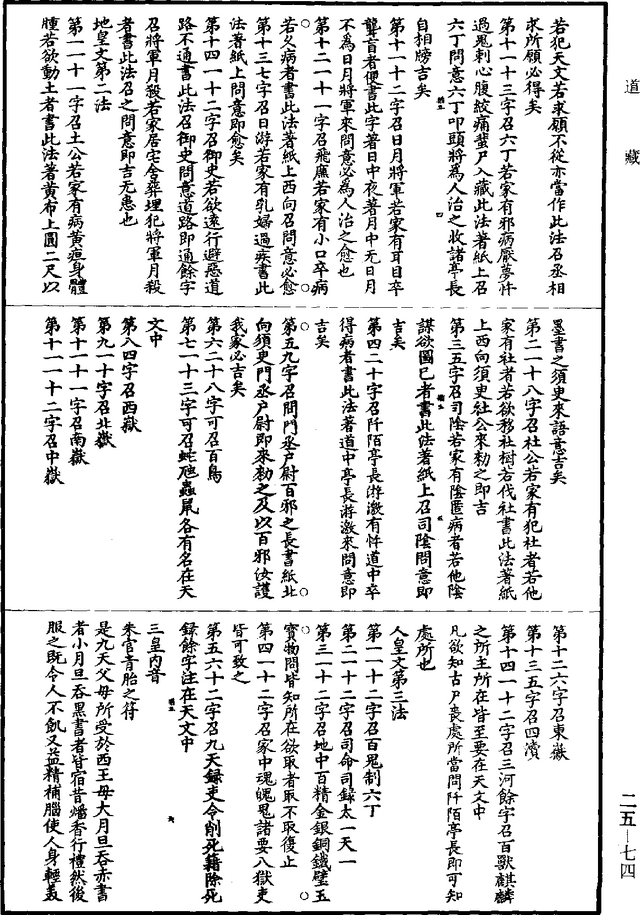 道藏
若犯天文若求願不從亦當作此法召丞相
求所願必得矣
第十一十三字召六丁若家有邪病厭夢忤
過鬼刺心腹絞痛蜚尸入藏此法著紙上召
六丁問意六丁叩頭將為人治之收諸亭長
自相牓吉矣
第十一十二字召日月將軍若家有耳目卒
聾盲者便書此字著日中夜著月中无日月
不為日月將軍來問意必為人治之愈也
第十二一十一字召飛廉若家有小口卒病
若久病者書此法著紙上西向召問意必愈
第十三七字召日游若家有乳婦過疾書此
法著紙上問意即愈矣
第十四一十二字召御史若欲遠行避惡道
路不通書此法召御史問意道路即通餘字
召將軍月殺若家居宅舍葬埋犯將軍月殺
者書此法召之問意即吉无患也
地皇文第二法
第一一十一字召土公若家有病黃疸身體
腫若欲動土者書此法著黃布上圓二尺以
墨書之須臾來語意吉矣
第二一十八字召社公若家有犯社者若他
家有社者若欲移社樹若伐社書此法著紙
上西向須臾社公來勑之即吉
第三五字召司陰若家有陰匿病者若他陰
謀欲圖己者書此法著紙上召司陰問意即
吉矣
第四二十字召阡陌亭長游激有忤道中卒
得病者書此法著道中亭長游激來問意即
吉矣
第五九字召問門丞戶尉百邪之長書紙北
向須臾門丞戶尉即來勑之及以百邪汝護
我家必吉矣
第六二十八字可召百鳥
第七一十三字可召蛇虺蟲鼠各有名在天
文中
第八四字召西嶽
第九一十字召北嶽
第十一十一字召南嶽
第十一一十二字召中嶽
第十二六字召東嶽
第十三五字召四瀆
第十四一十二字召三河餘字召百獸麒麟
之所主所在皆至要在天文中
凡欲知古尸喪處所當問阡陌亭長即可知
處所也
人皇文第三法
第一一十二字召百鬼制六丁
第二一十二字召司命司錄太一天一
第三一十二字召地中百精金銀銅鐵璧玉
寶物問皆知所在欲取者取不取復止
第四一十二字召冢中魂魄鬼諸要八獄吏
皆可致之
第五六十二字召九天錄吏令削死籍除死
錄餘字注在天文中
三皇內音
朱官青胎之符
是九天父母所受於西王母大月旦吞赤書
者小月旦吞黑書者皆宿昔燔香行禮然後
服之既令人不飢又益精補腦使人身輕美
二五—七四